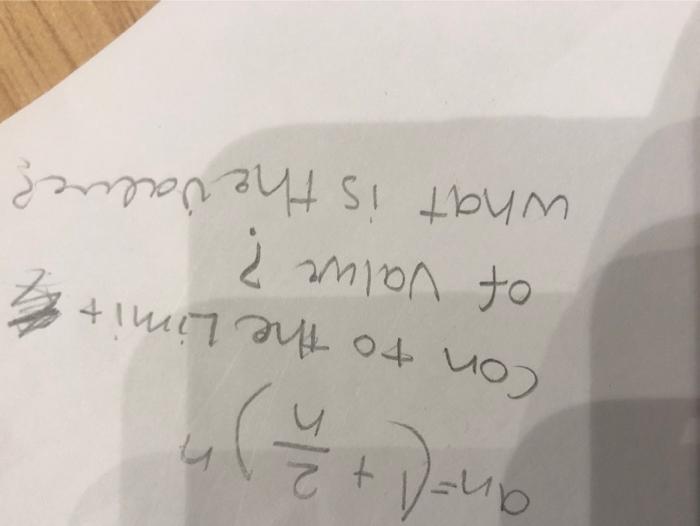 an=(1+2/n)n
con to the Limit
of value?
what is the value?